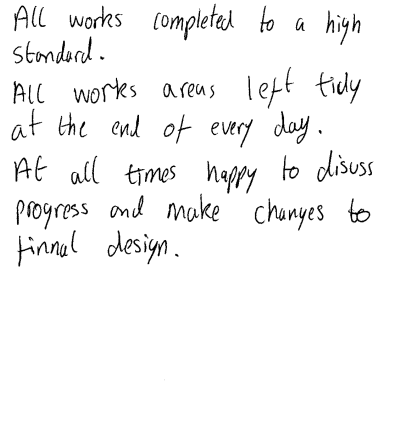 All works completed to a high
standard.
All works areas left tidy
at the end of every day.
At all times happy to disuss
progress and make changes to
finnal design.